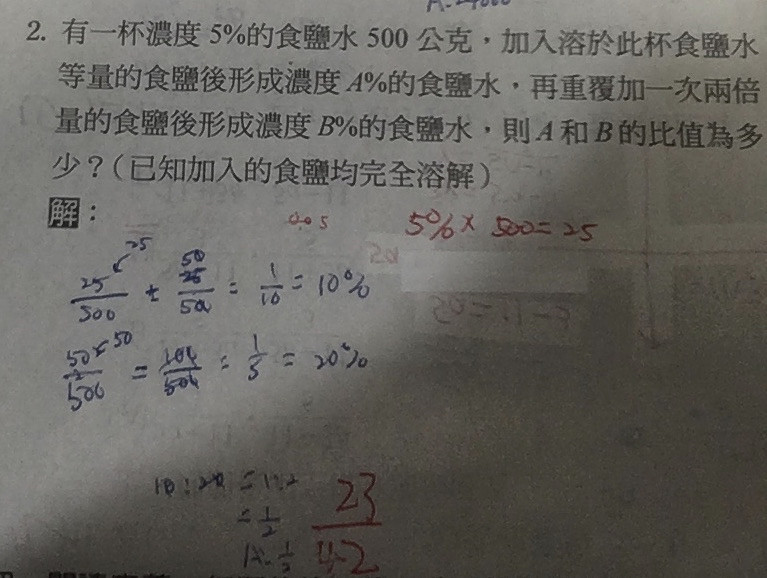 2. 有一杯濃度 5%的食鹽水 500 公克，加入溶於此杯食鹽水
等量的食鹽後形成濃度 A%的食鹽水，再重覆加一次兩倍
量的食鹽後形成濃度 B%的食鹽水，則 A 和 B 的比值為多
少？（已知加入的食鹽均完全溶解）
解：
0.05 5% × 500 = 25
25
= 1/10 = 10%
50
= 1/5 = 20%
10:20 = 1:2
= 1/2
23/42